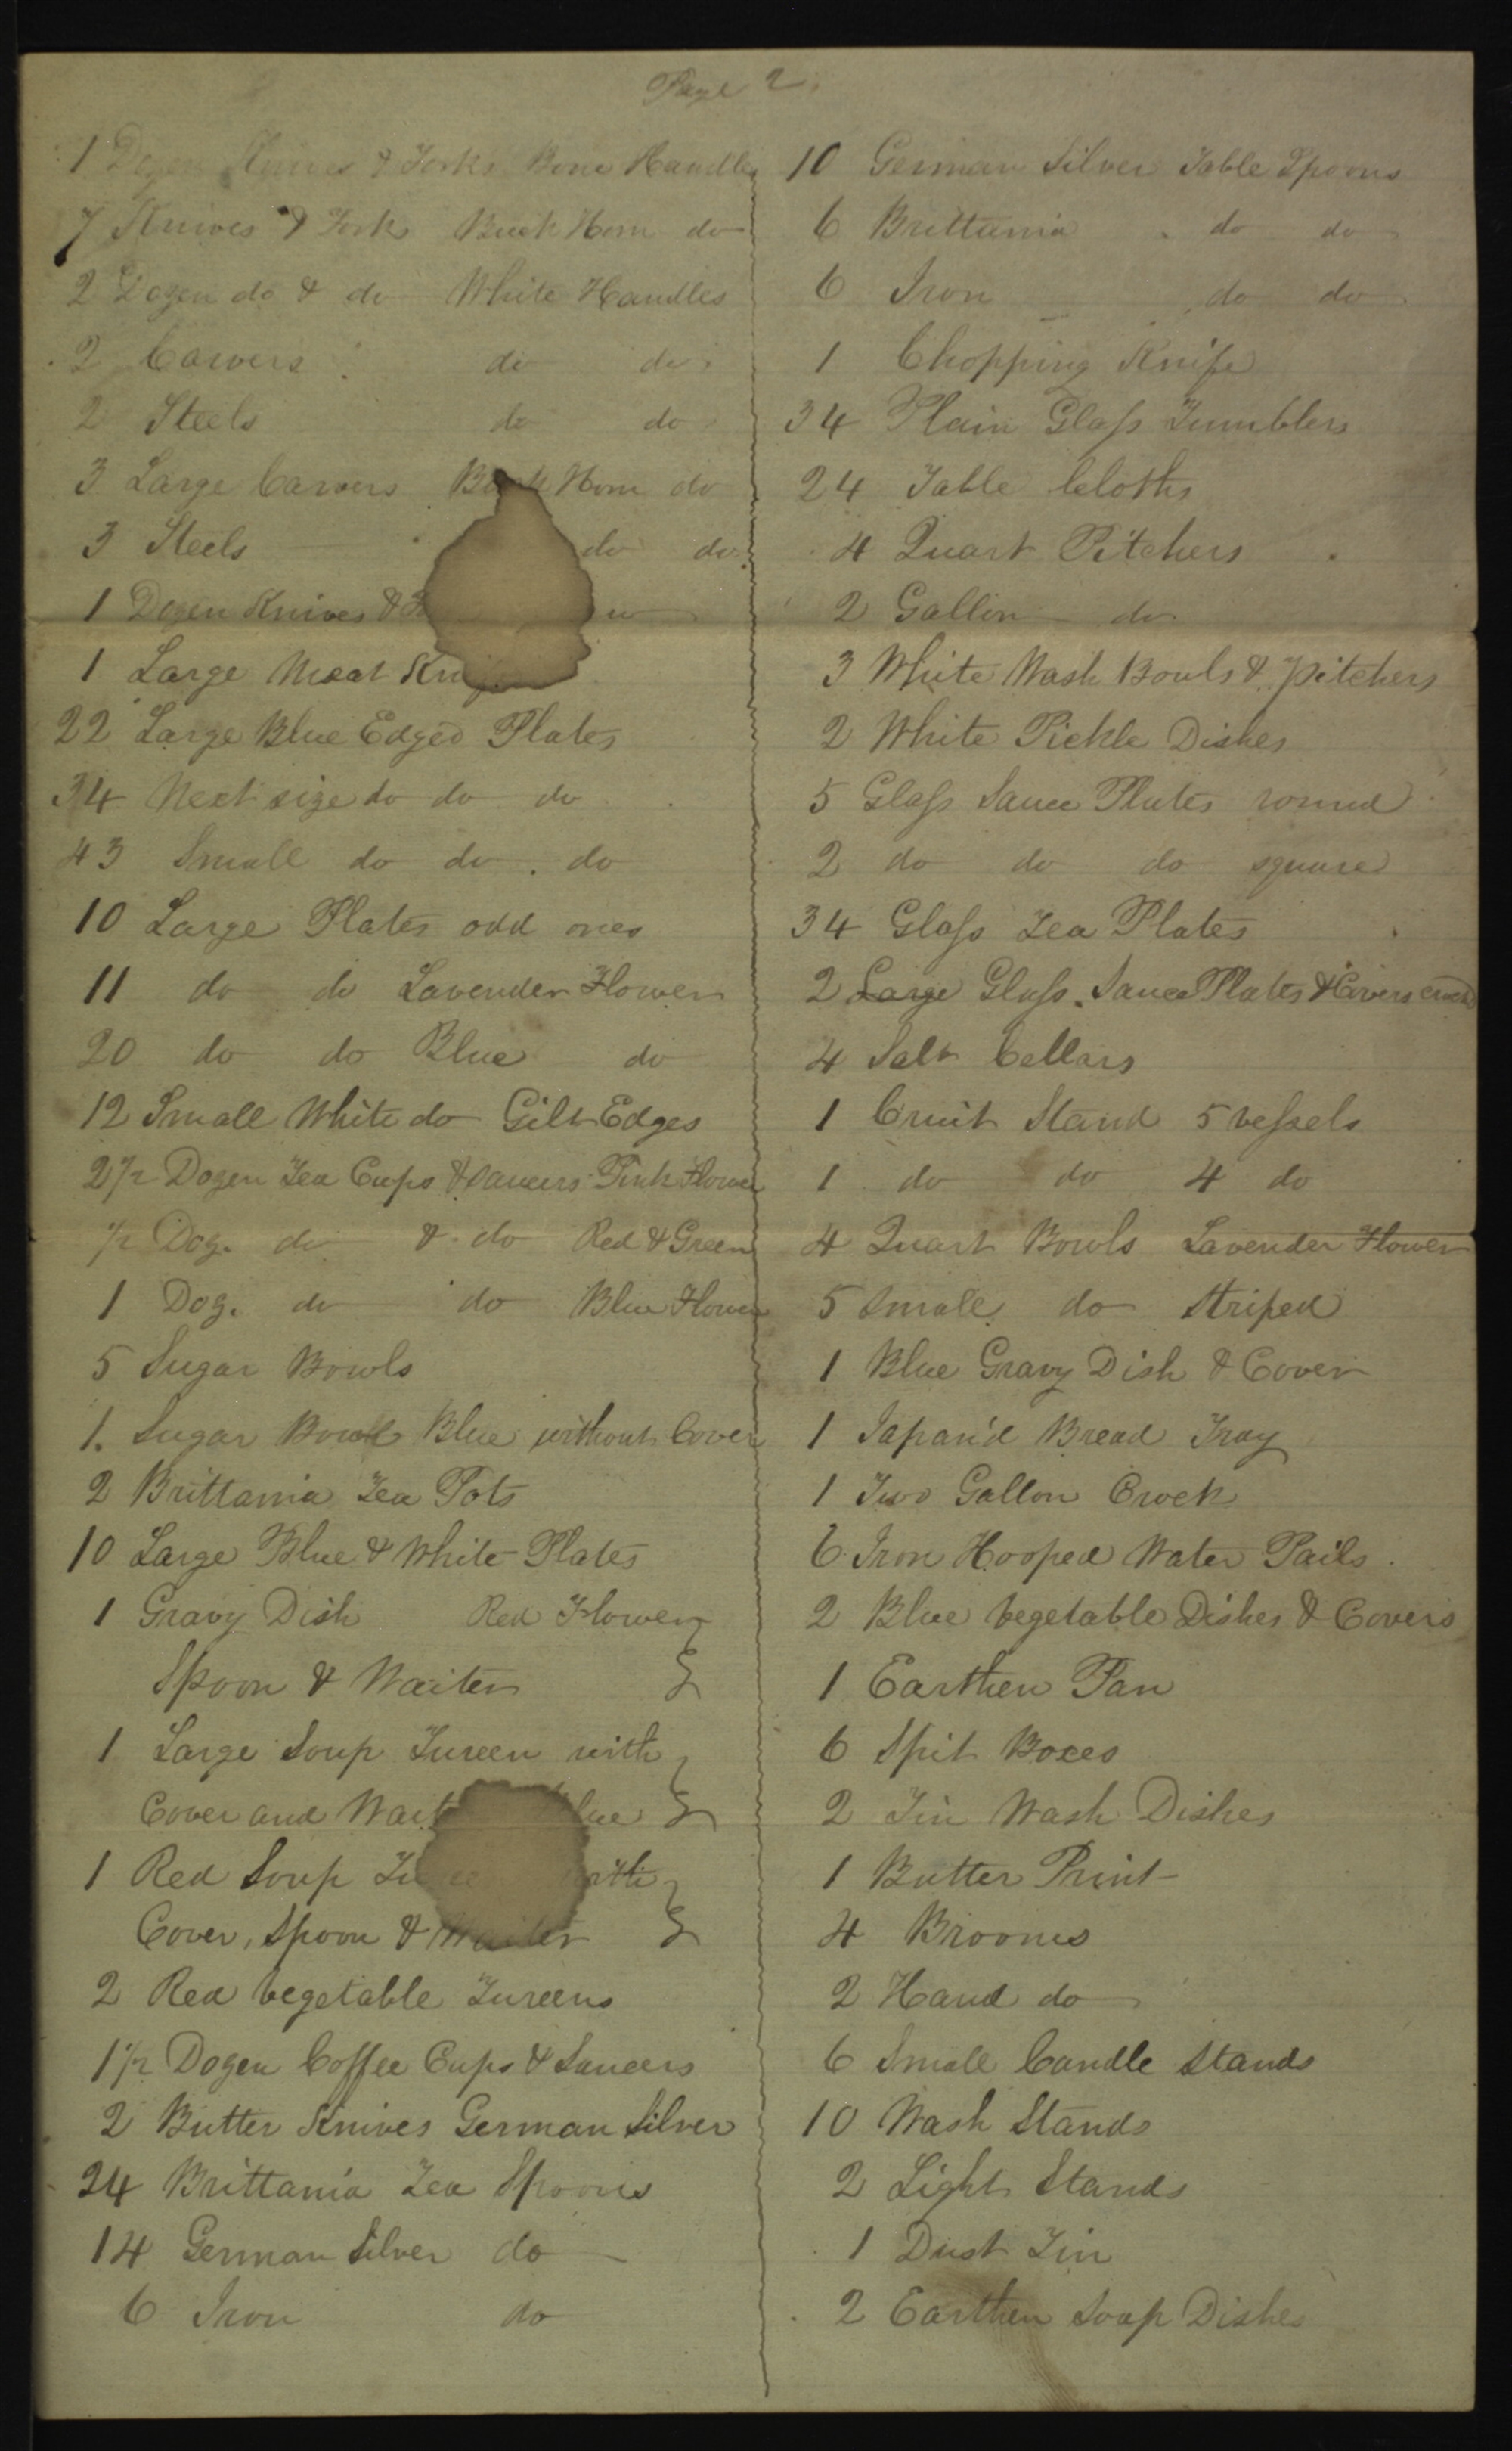 Page 2.
1 Dozen Knives & Forks Bone Handles
7 Knives & Forks Buck Horn do
2 Dozen do & do White Handles
2 Carvers do do
2 Steels do do
3 Large Carvers Buck Horn do
3 Steels do do
1 Dozen Knives &
1 Large Meat Knife
22 Large Blue Edged Plates
34 Next size do do do
43 Small do do do
10 Large Plates odd ones
11 do do Lavender Flower
20 do do Blue do
12 Small White do Gilt Edges
2 1/2 Dozen Tea Cups & Saucers Pink Flower
1/2 Doz. do & do Red & Green
1 Doz. do do Blue Flower
5 Sugar Bowls
1. Sugar Bowl Blue without Cover
2 Brittania Tea Pots
10 Large Blue & White Plates
1 Gravy Dish Red Flower
Spoon & Waiter
1 Large Soup Tureen with
Cover and Waiter Blue
1 Red Soup Tureen with
Cover, Spoon & Waiter
2 Red Vegetable Tureens
1 1/2 Dozen Coffee Cups & Saucers
2 Butter Knives German Silver
24 Brittania Tea Spoons
14 German Silver do
6 Iron do
10 German Silver Table Spoons
6 Brittania do do
6 Iron do do
1 Chopping Knife
34 Plain Glass Tumblers
24 Table Cloths
4 Quart Pitchers
2 Gallon do
3 White Wash Bowls & pitchers
2 White Pickle Dishes
5 Glass Sauce Plates round
2 do do do square
34 Glass Tea Plates
2 Large Glass Sauce Plates & Covers crack'd
4 Salt Cellars
1 Cruit Stand 5 vessels
1 do do 4 do
4 Quart Bowls Lavender Flower
5 Small do Striped
1 Blue Gravy Dish & Cover
1 Japan'd Bread Tray
1 Two Gallon Crock
6 Iron Hooped Water Pails
2 Blue Vegetable Dishes & Covers
1 Earthen Pan
6 Spit Boxes
2 Tin Wash Dishes
1 Butter Print
4 Brooms
2 Hand do
6 Small Candle Stands
10 Wash Stands
2 Light Stands
1 Dust Tin
2 Earthen Soap Dishes